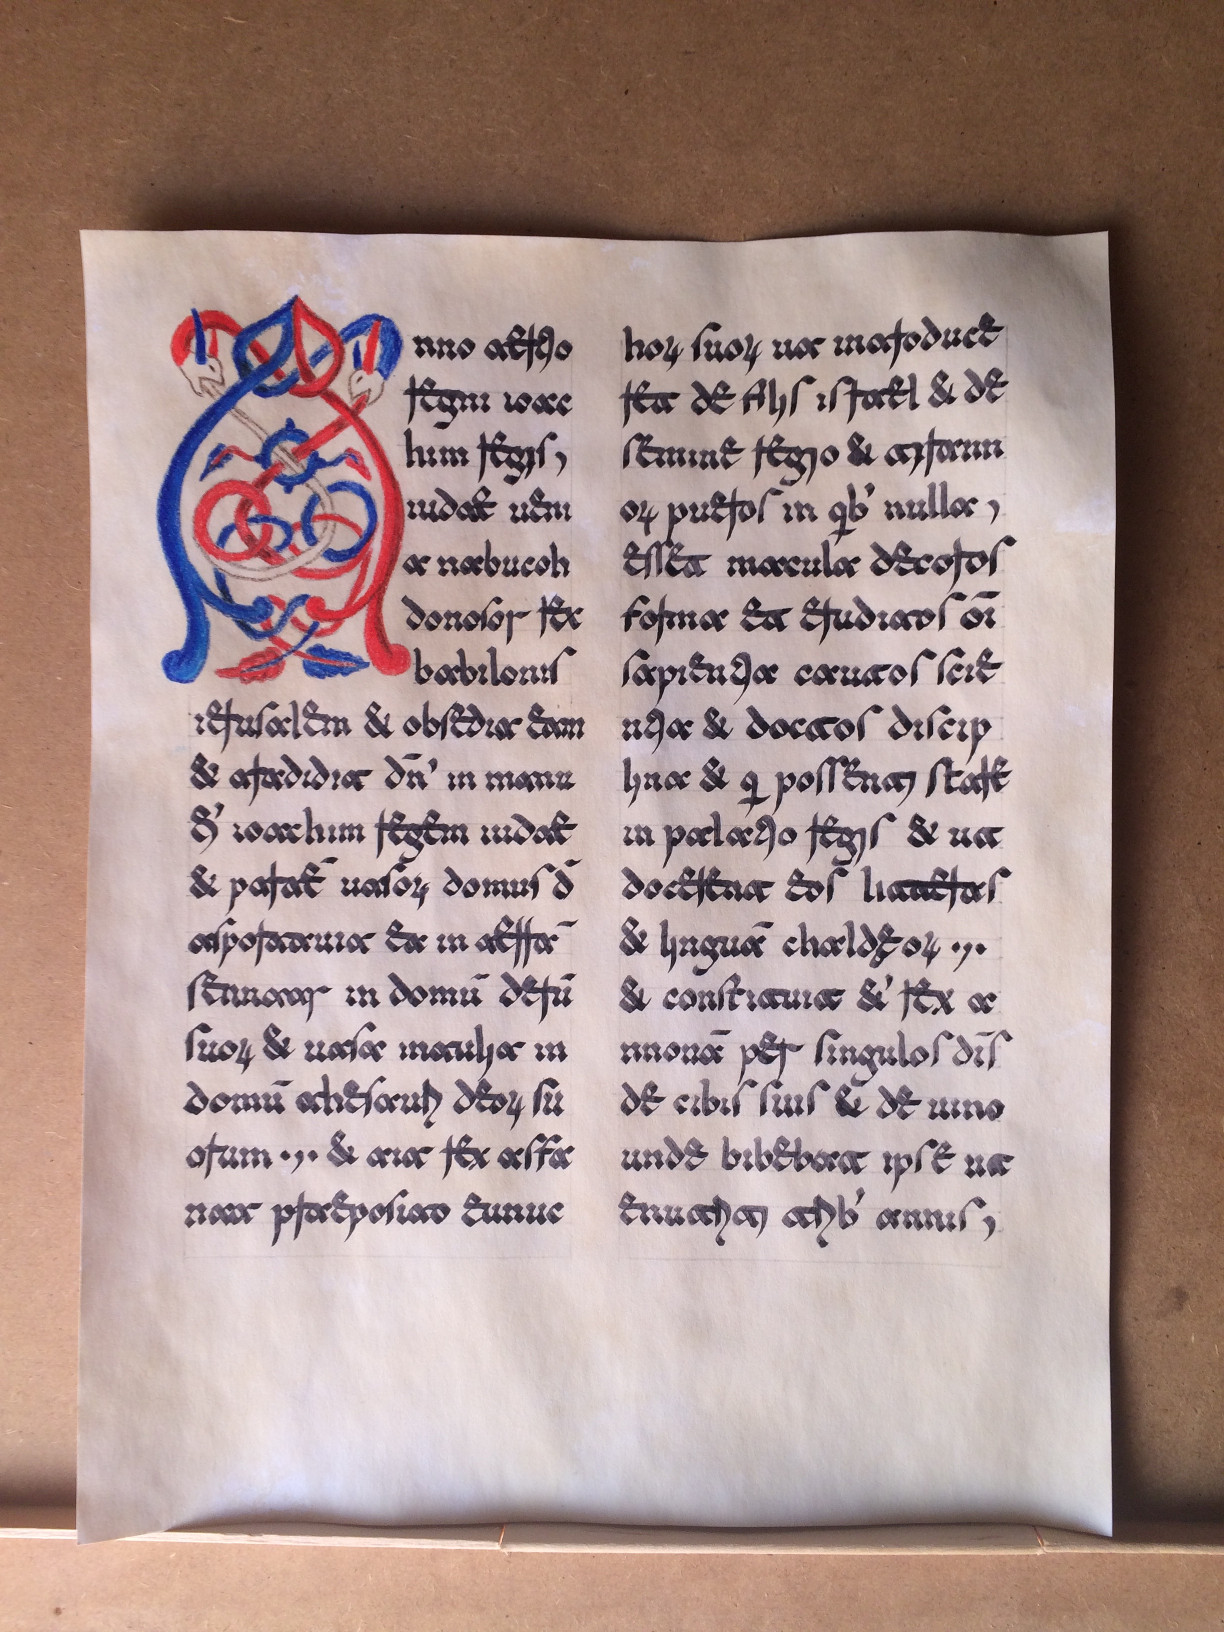 Anno tertio
regni ioac
him regis,
iudae ueni
t nabucoh
donosor rex
babilonis
ierusalem & obsedit eam
& tradidit dn̄' in manu
ioachim regem iudae
& partē uasoꝝ domus d̄
asportauit ea in terrā
in domū
suoꝝ & uasa intulit in
domū thesauri deoꝝ su
orum ·,· & ait rex asfa
praeposito eunuc
hoꝝ suoꝝ ut introducē
ret de filiis israel & de
semine regio & tirann
oꝝ pueros in qb' nulla,
esset macula decoros
forma et eruditos ōi
sapientia cautos scie
ntia & doctos discip
lina & q possent stare
in palatio regis & ut
docerent eos litteras
& linguā chaldeoꝝ ·,·
& constituit &' rex a
nnonā per singulos dīs
de cibis suis & de uino
unde bibebat ipse ut
enutriti trib' annis,